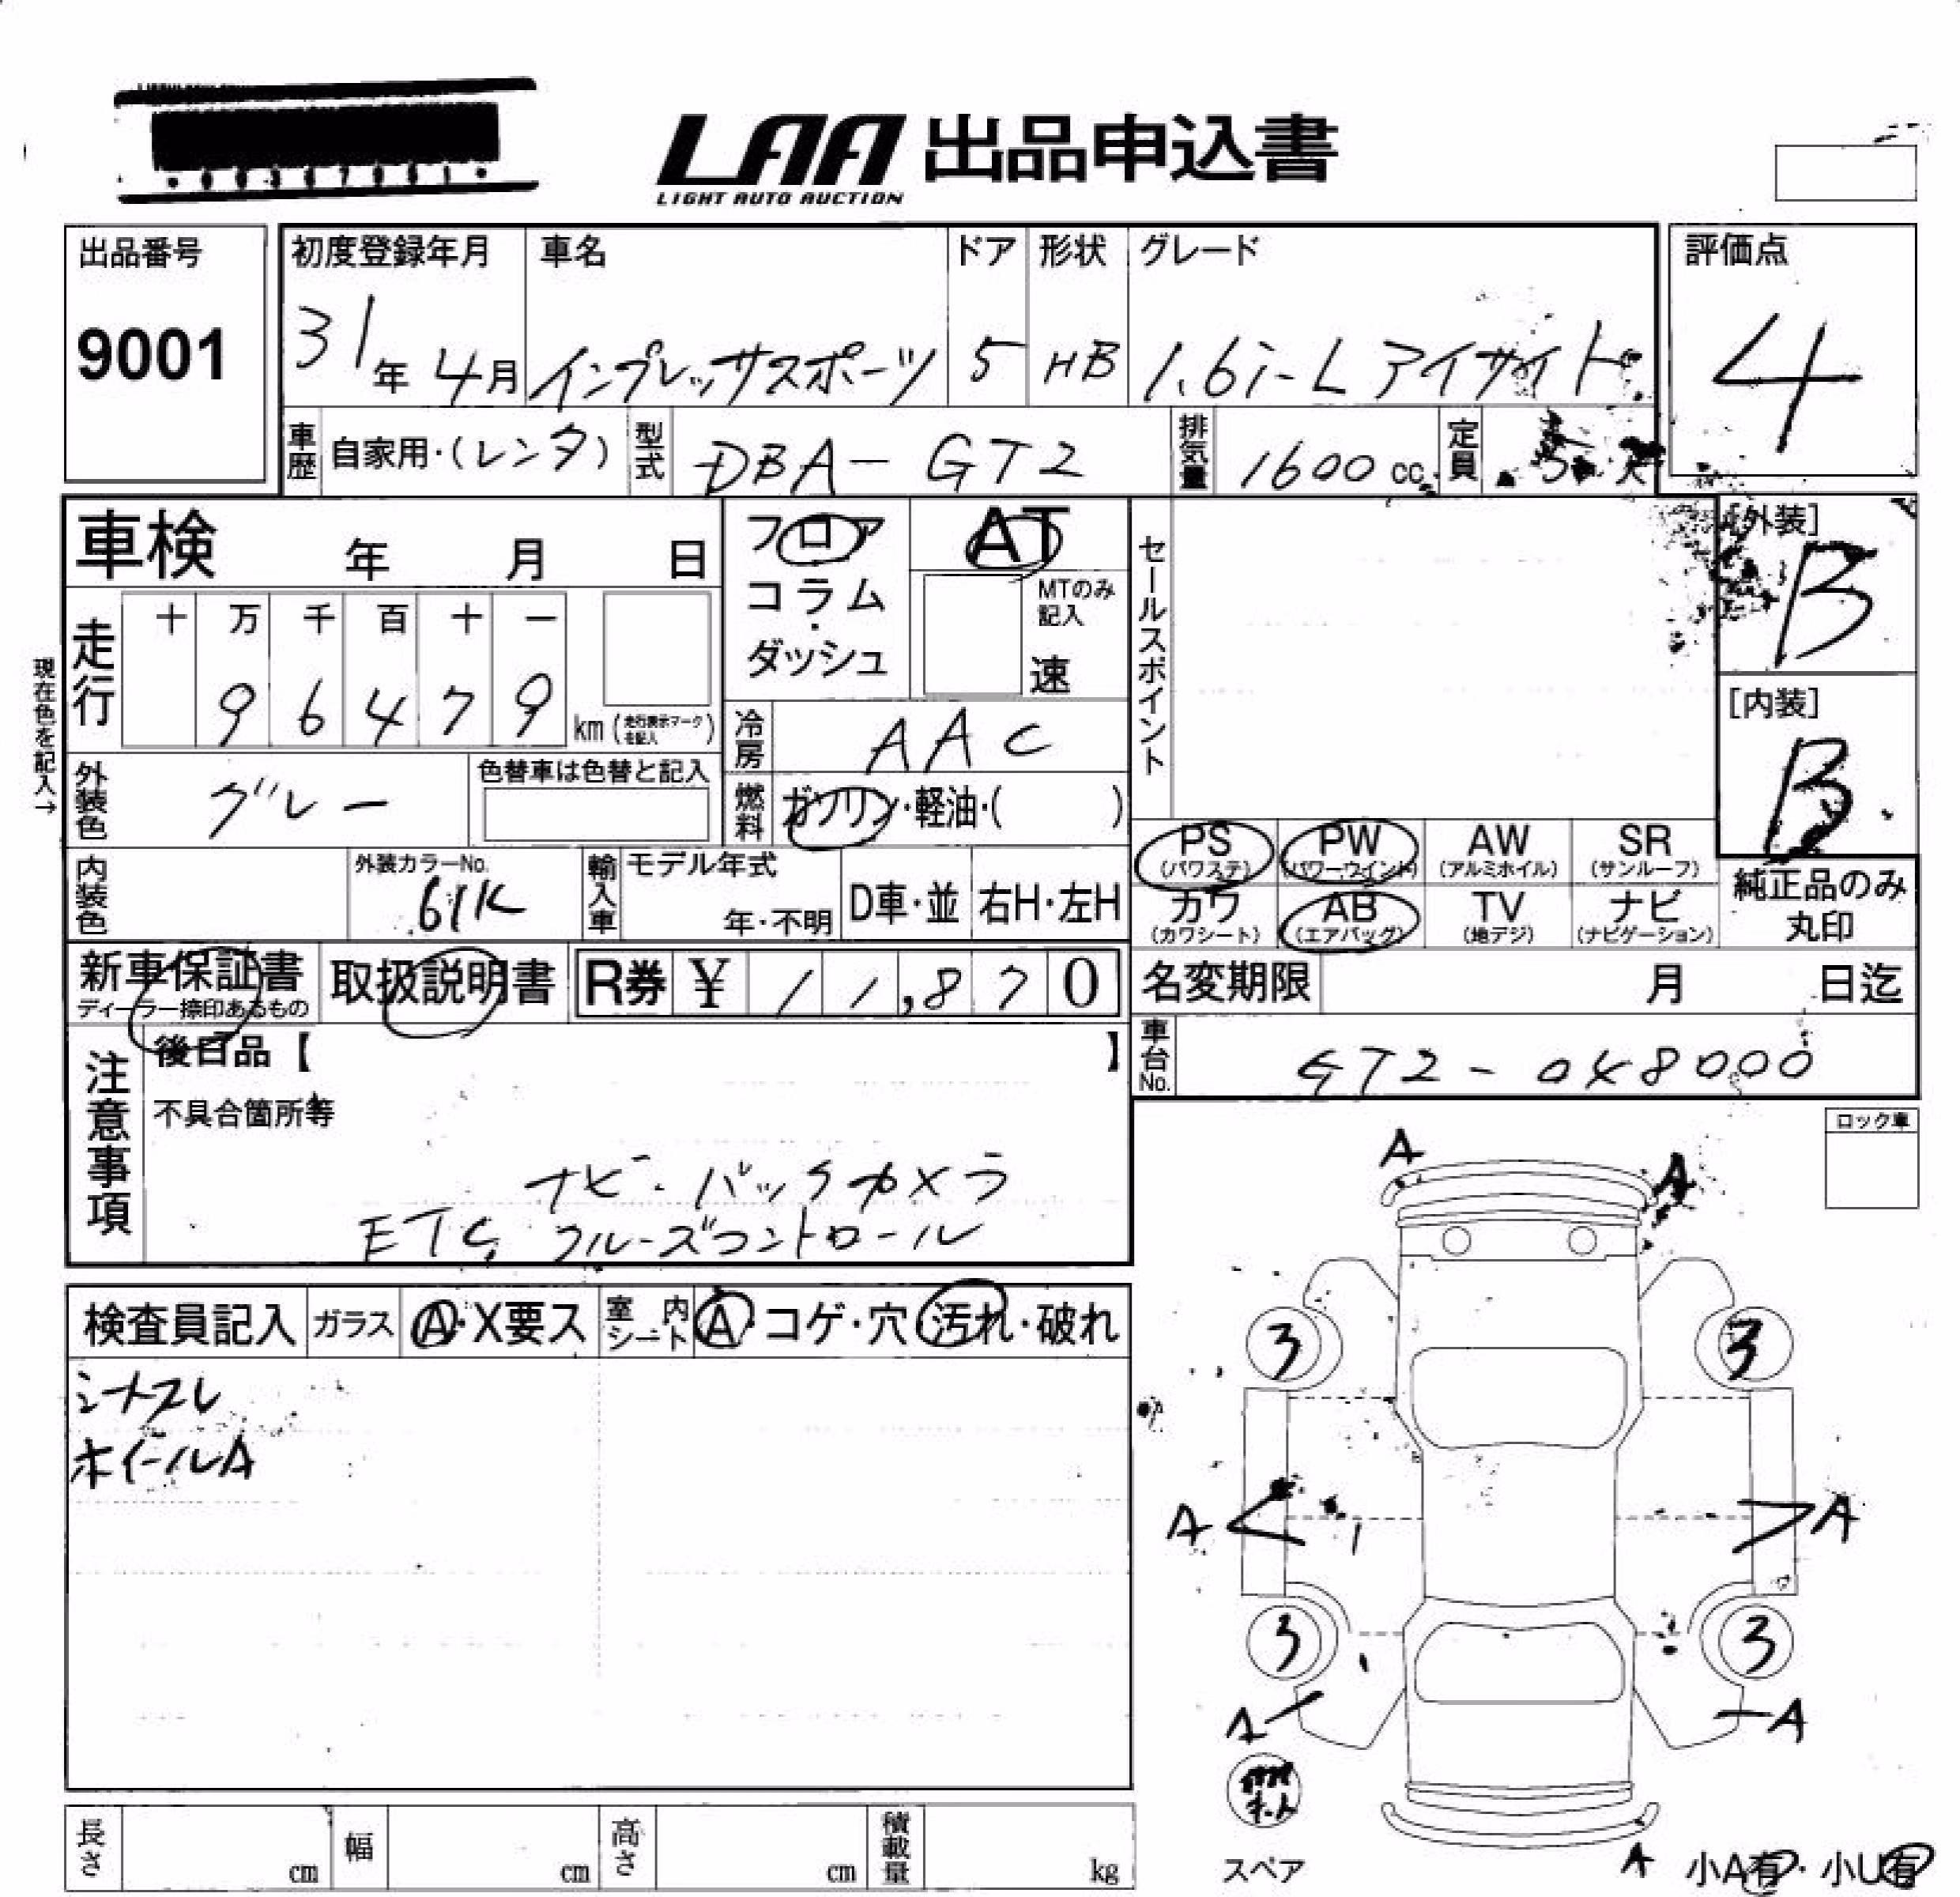 LAA 出品申込書
LIGHT AUTO AUCTION
出品番号 9001
初度登録年月 31年 4月
車名 インプレッサスポーツ
ドア 5
形状 HB
グレード 1.6i-L アイサイト
評価点 4
車歴 自家用・(レンタ)
型式 DBA-GT2
排気量 1600 cc
定員 5人
車検 年 月 日
フロア
コラム
・
ダッシュ
AT
MTのみ記入
速
セールスポイント
[外装] B
[内装] B
現在色を記入→
走行 十 万 千 百 十 一
9 6 4 7 9
km (走行表示マークを記入)
冷房 AAC
外装色 グレー
色替車は色替と記入
燃料 ガソリン・軽油・( )
内装色
外装カラーNo. 61K
輸入車 モデル年式 年・不明
D車・並 右H・左H
PS (パワステ)
PW (パワーウインド)
AW (アルミホイル)
SR (サンルーフ)
カワ (カワシート)
AB (エアバッグ)
TV (地デジ)
ナビ (ナビゲーション)
純正品のみ丸印
新車保証書
ディーラー捺印あるもの
取扱説明書
R券 ¥ 11,870
名変期限 月 日迄
車台No. GT2-048000
注意事項
後日品【 】
不具合箇所等
ナビ・バックカメラ
ETC, クルーズコントロール
ロック車
検査員記入 ガラス A・X要ス 室内シート A・コゲ・穴・汚れ・破れ
ホイールA
A A
3 3
A A
3 3
A A
スペア
A
小A有・小U有
長さ cm 幅 cm 高さ cm 積載量 kg